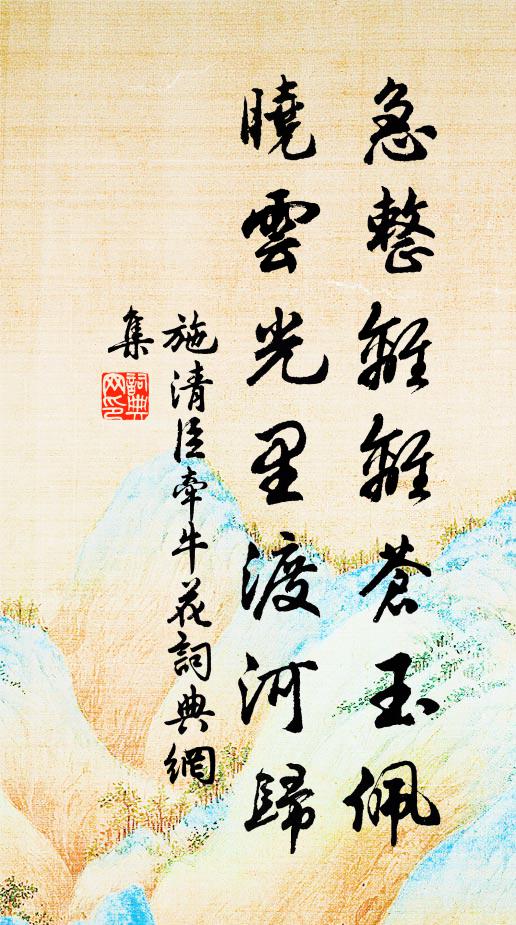 急整離離蒼玉佩
曉雲光里渡河歸
施清臣牽牛花詞典網
集
詞典
网印